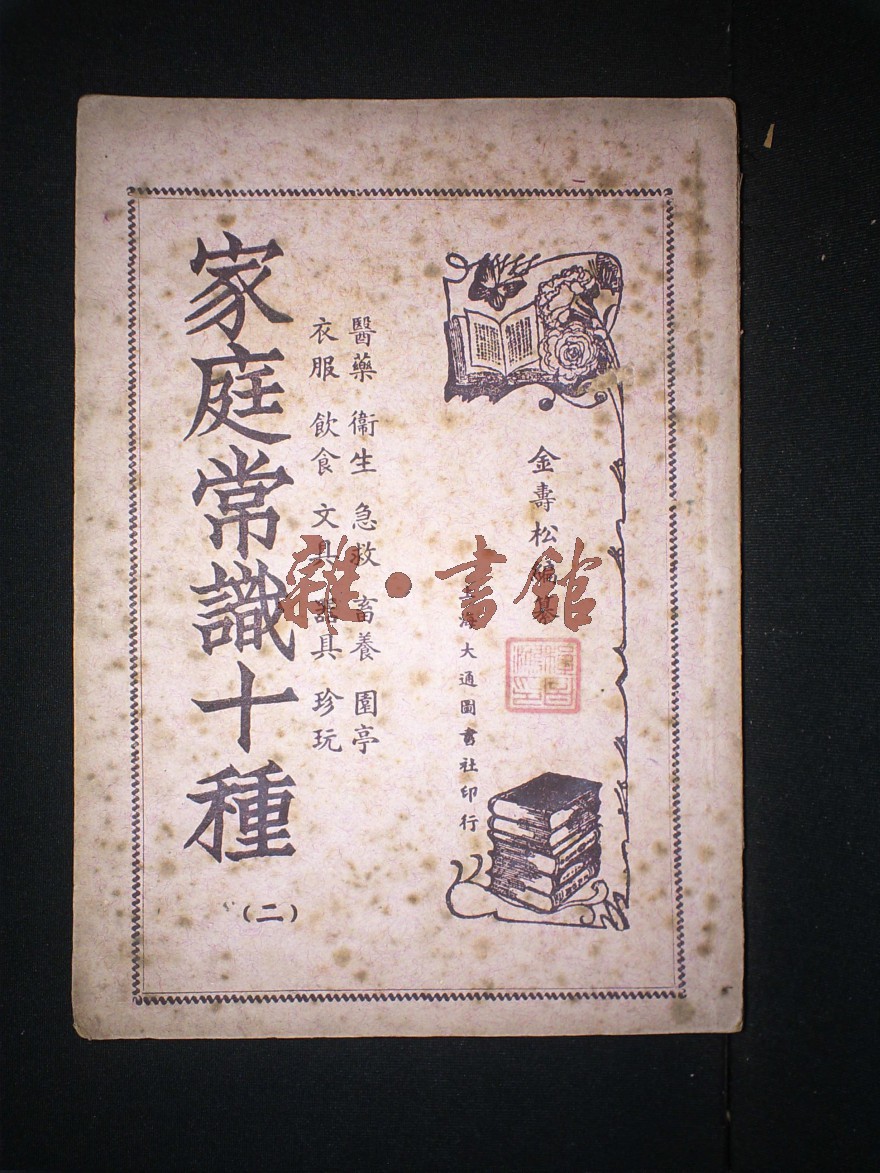 金壽松編纂
上海大通圖書社印行
醫藥 衞生 急救 畜養 園亭
衣服 飲食 文具 器具 珍玩
家庭常識十種
(二)
雜·書館